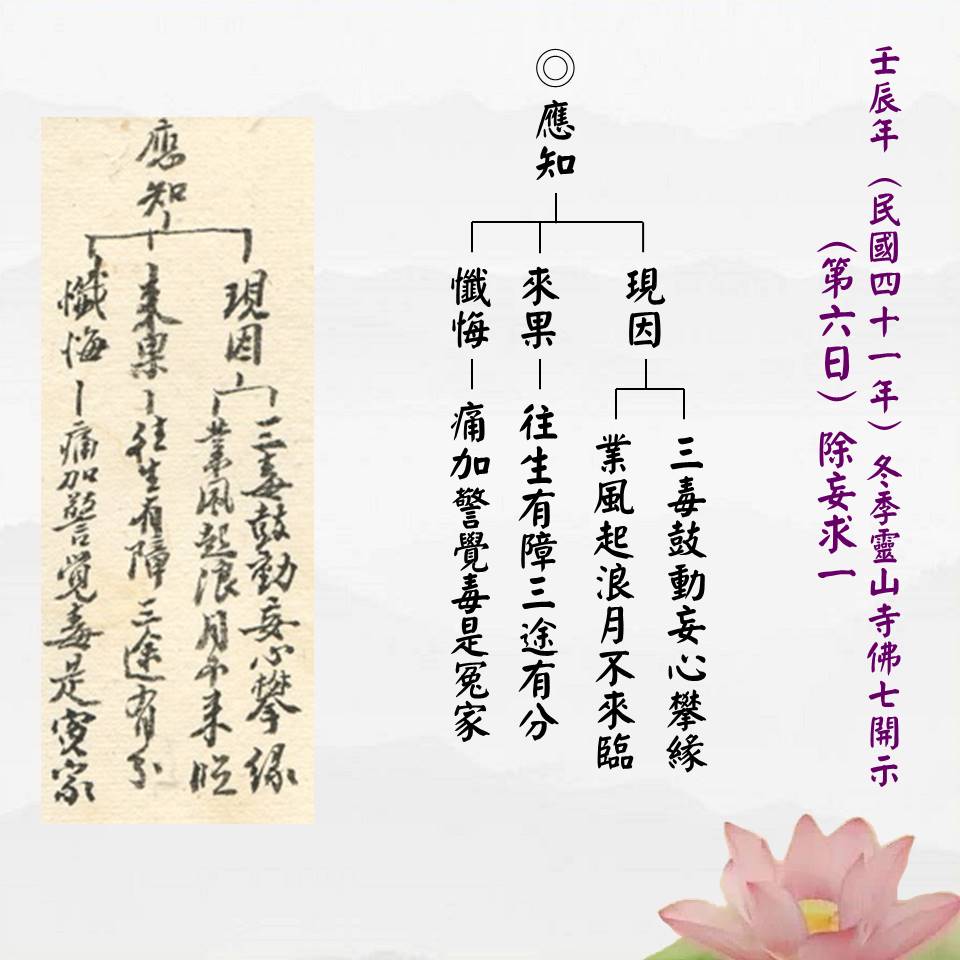 壬辰年（民國四十一年）冬季靈山寺佛七開示
（第六日）除妄求一
◎
應知
現因
三毒鼓動妄心攀緣
業風起浪月不來臨
來果
往生有障三途有分
懺悔
痛加警覺毒是冤家
應知
現因
三毒鼓動妄心攀緣
業風起浪月不來臨
來果
往生有障三途有分
懺悔
痛加警覺毒是寃家